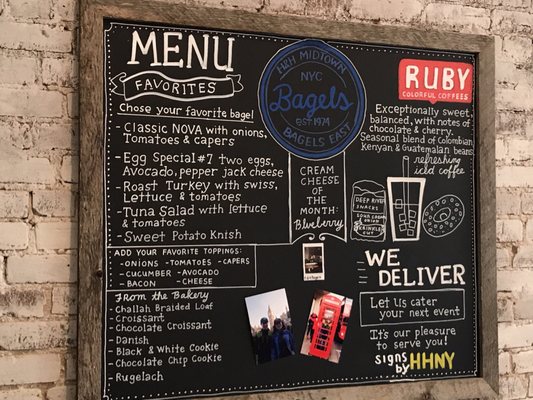 MENU
FAVORITES
Chose your favorite bagel!
- Classic NOVA with onions,
Tomatoes & capers
- Egg Special #7 two eggs,
Avocado, pepper jack cheese
- Roast Turkey with swiss,
Lettuce & tomatoes
- Tuna Salad with lettuce
& tomatoes
- Sweet Potato Knish
ADD YOUR FAVORITE TOPPINGS:
- ONIONS - TOMATOES - CAPERS
- CUCUMBER - AVOCADO
- BACON - CHEESE
From the Bakery
- Challah Braided Loaf
- Croissant
- Chocolate Croissant
- Danish
- Black & White Cookie
- Chocolate Chip Cookie
- Rugelach
H&H MIDTOWN
NYC
Bagels
EST 1974
BAGELS EAST
CREAM
CHEESE
OF THE
MONTH:
Blueberry
RUBY
COLORFUL COFFEES
Exceptionally sweet,
balanced, with notes of
chocolate & cherry.
Seasonal blend of Colombian
Kenyan & Guatemalan beans
refreshing
iced coffee
DEEP RIVER
SNACKS
SOUR CREAM
AND ONION
KRINKLE
CUT
WE
DELIVER
Let us cater
your next event
It's our pleasure
to serve you!
signs
by HHNY